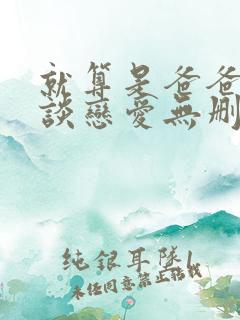 就算是爸爸
談戀愛無刪
純銀耳墜1
未经同意禁止转载